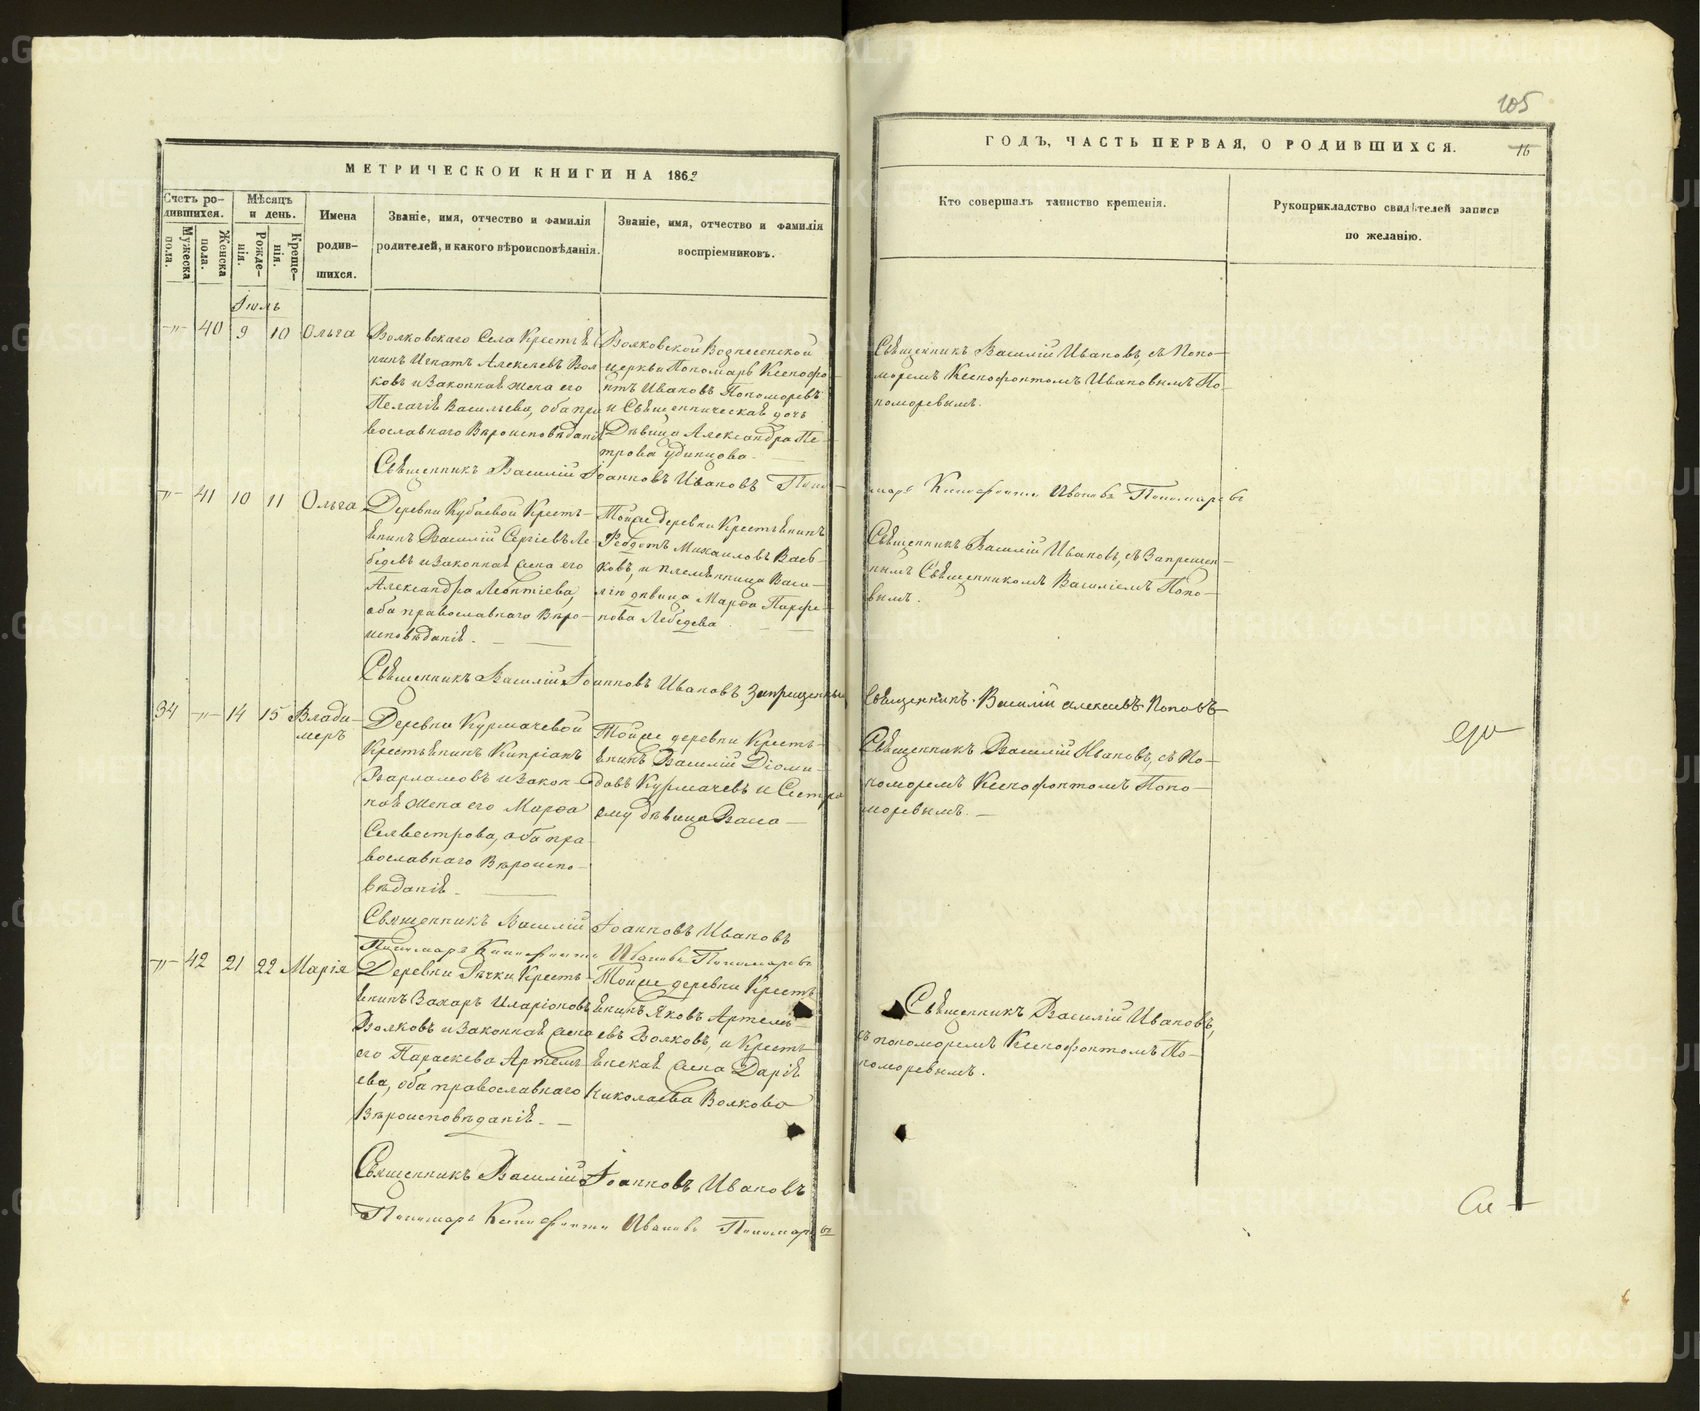 105
МЕТРИЧЕСКОЙ КНИГИ НА 1862
ГОДЪ, ЧАСТЬ ПЕРВАЯ, О РОДИВШИХСЯ.
16
Счетъ ро-
дившихся.
Мужеска
пола.
Женска
пола.
Мѣсяцъ
и день.
Рожде-
нія.
Креще-
нія.
Имена
родив-
шихся.
Званіе, имя, отчество и фамилія
родителей, и какого вѣроисповѣданія.
Званіе, имя, отчество и фамилія
воспріемниковъ.
Кто совершалъ таинство крещенія.
Рукоприкладство свидѣтелей записи
по желанію.
Іюль
-"- 40 9 10 Ольга
Волковскаго Села Крестья
нинъ Игнатъ Алексѣевъ Вол
ковъ и законная жена его
Пелагія Васильева, оба пра
вославнаго Вѣроисповѣданія
Волковской Вознесенской
церкви Пономарь Ксенофо
нтъ Ивановъ Пономоревъ
и Священническая дочь
Дѣвица Александра Пе-
трова Удинцова.
Священникъ Василій Ивановъ, съ Поно-
моремъ Ксенофонтомъ Ивановымъ По-
номоревымъ.
Священникъ Василій Іоанновъ Ивановъ Поно-
марь Ксенофонтъ Ивановъ Пономаревъ
-"- 41 10 11 Ольга
Деревни Кубаевой Кресть-
янинъ Василій Сергіевъ Ле-
бедевъ и законная жена его
Александра Леонтіева,
оба православнаго Вѣро-
исповѣданія.
Тойже деревни Крестьянинъ
Ѳедотъ Михаиловъ Вас
ковъ, и племянница Васи-
лію дѣвица Марѳа Парфе-
нова Лебедева
Священникъ Василій Ивановъ, съ Запрещен-
нымъ Священникомъ Василіемъ Попо-
вымъ.
Священникъ Василій Іоанновъ Ивановъ Запрещенный
Священникъ Василій Алексѣевъ Поповъ
34 -"- 14 15 Влади-
меръ
Деревни Курмачевой
Крестьянинъ Кипріанъ
Варламовъ и закон-
ная жена его Марѳа
Селвестрова, оба пра
вославнаго Вѣроиспо-
вѣданія.
Тойже деревни Кресть-
янинъ Василій Діоми-
довъ Курмачевъ и Сестра
ему дѣвица Васса
Священникъ Василій Ивановъ, съ По-
номоремъ Ксенофонтомъ Поно-
моревымъ.
Священникъ Василій Іоанновъ Ивановъ
Пономарь Ксенофонтъ Ивановъ Пономаревъ
-"- 42 21 22 Марія
Деревни Рѣчки Кресть-
янинъ Захаръ Иларіоновъ
Волковъ и законная жена
его Параскева Артемь-
ева, оба православнаго
Вѣроисповѣданія.
Тойже деревни Кресть
янинъ Яковъ Артемь-
евъ Волковъ, и Кресть-
янская жена Дарія
Николаева Волкова
Священникъ Василій Ивановъ,
съ пономоремъ Ксенофонтомъ По-
номоревымъ.
Священникъ Василій Іоанновъ Ивановъ
Пономарь Ксенофонтъ Ивановъ Пономаревъ
METRIKI.GASO-URAL.RU